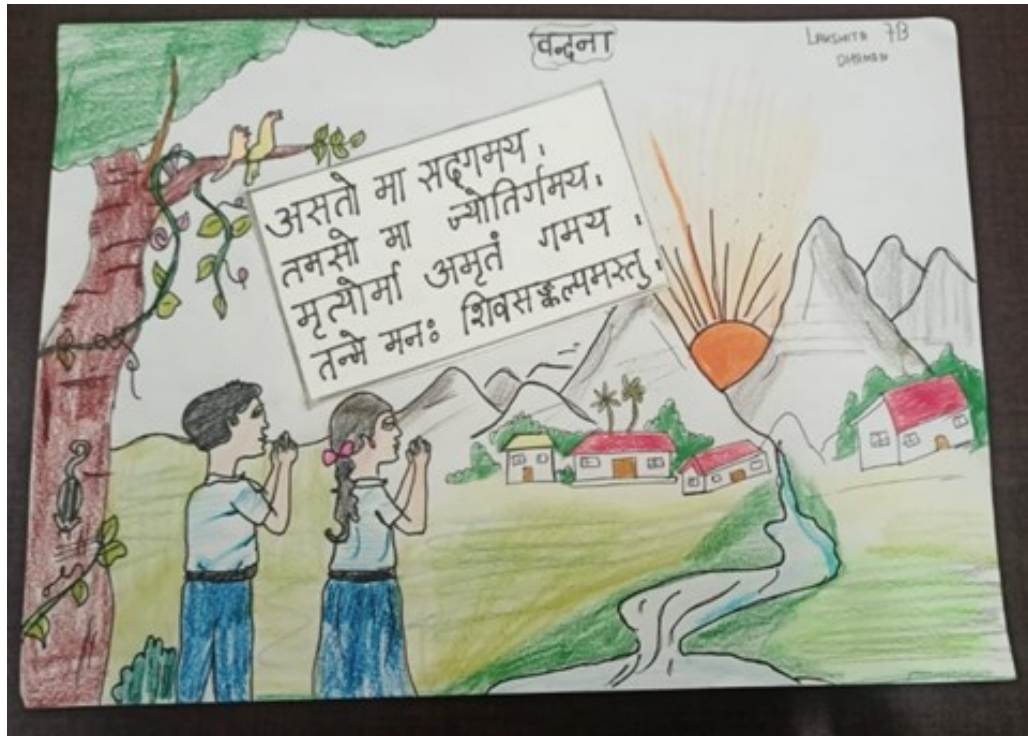 वन्दना
LAKSHITA 7B
DHAMAN
असतो मा सद्गमय।
तमसो मा ज्योतिर्गमय।
मृत्योर्मा अमृतं गमय।
तन्मे मनः शिवसङ्कल्पमस्तु।